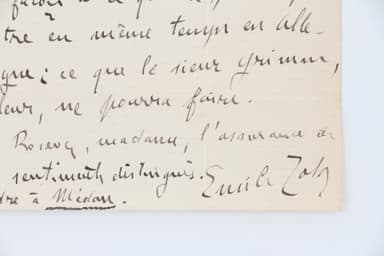 tre en même temps en alle-
gne ; ce que le sieur Grimm,
leur, ne pourra faire.
Recevez, madame, l'assurance de
sentiments distingués.
Emile Zola
dre à Médan.